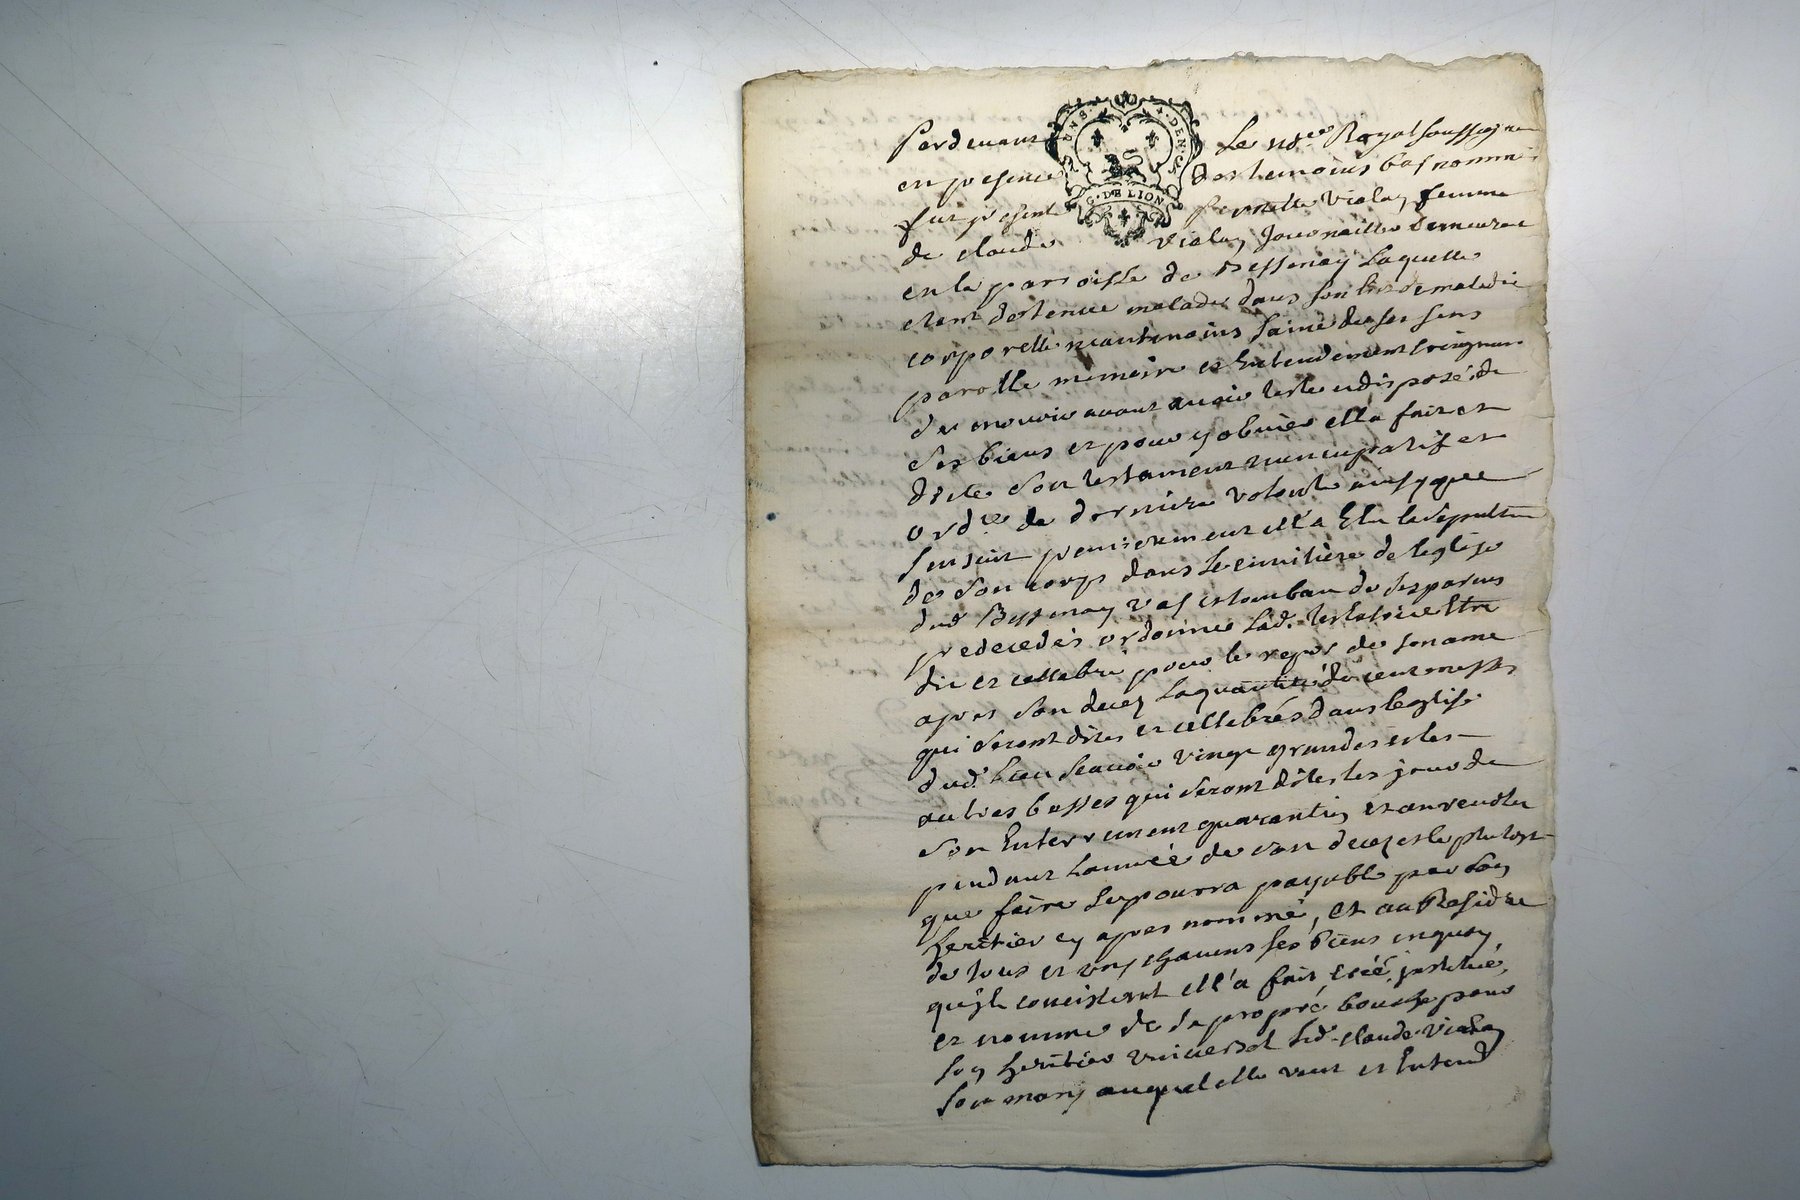 Pardevant Le no.re Royal soussigné
en presence des temoins bas nommés
fut presente pernette Viala, femme
de claude Viala, Journaillier Demeurant
en la parroisse de Bessenay Laquelle
etant destenue malade dans son lict de maladie
corporelle neantmoins saine de ses sens
parolle memoire et Entendement creignant
de mourir avant avoir testé ny disposé de
ses biens et pour y obvier ella fait et
dicte son testament nuncupatif et
ord.re de derniere volonté ainsy que
sensuit premierement ell'a Elu la sepulture
de son corps dans le cimitiere de leglise
dud. Bessenay vas et tombau de ses parens
predecedés ordonne Lad. testatrice Etre
dit et cellebré pour le repos de son ame
apres son decez La quantité de cent messes
qui seront dites et cellebrés dans leglise
dud. Lieu scavoir vingt grandes et les
autres basses qui seront dites les jours de
son Enterrement quarantin et anrevolu
pendant Lannée de son decez et le plutost
que faire se pourra payable par son
heritier cy apres nommé, et au Residu
de tous et uns chacuns ses biens en quoy
qu'ils concistent ell'a fait creé, institué,
et nommé de sa propre bouche pour
son heritier universel led. claude Viala
son mary auquel elle veut et Entend
G. DE LION
UN S. DEN.